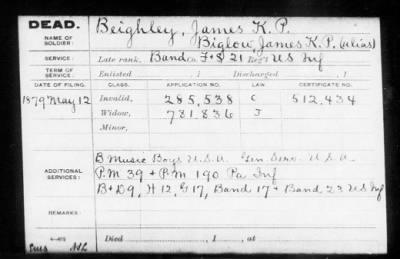 DEAD. Beighley, James K. P.
NAME OF SOLDIER: Biglow, James K. P. (alias)
SERVICE: Late rank, Band Co. F+S 21 Reg't US Inf
TERM OF SERVICE: Enlisted , 1 Discharged , 1
DATE OF FILING. CLASS. APPLICATION NO. LAW. CERTIFICATE NO.
1879 May 12 Invalid, 285,538 C 512,434
Widow, 781,836 J
Minor,
ADDITIONAL SERVICES: B Music Boys U.S.A. Gen. Serv. U.S.A.
P.M 39 + P.M 190 Pa Inf
B+D9, H 12, G 17, Band 17 + Band 23 US Inf
REMARKS:
Died , 1 , at